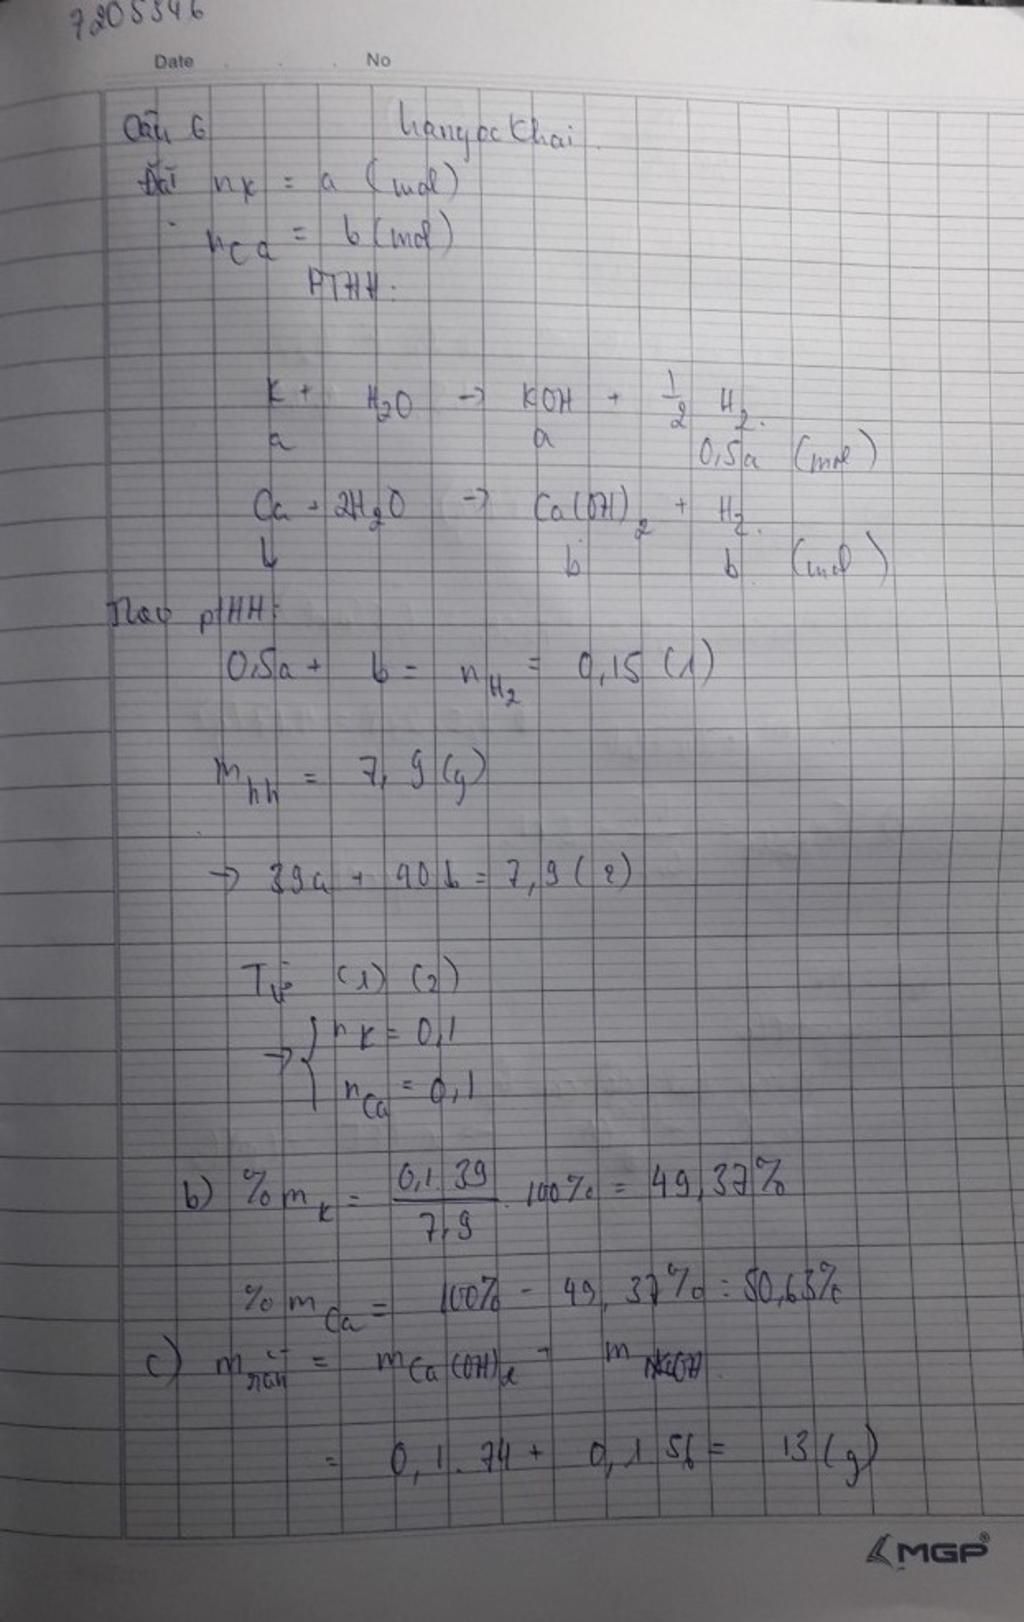 7205346
Date No
Câu 6 hangocKhai
Đặt nK = a (mol)
nCa = b (mol)
PTHH:
K + H2O → KOH + 1/2 H2.
a a 0,5a (mol)
Ca + 2H2O → Ca(OH)2 + H2.
b b b (mol)
ptHH:
0,5a + b = nH2 = 0,15 (1)
mhh = 7,9 (g)
→ 39a + 40b = 7,9 (2)
Từ (1) (2)
→ { nK = 0,1
nCa = 0,1
b) %mK = 0,1.39/7,9 . 100% = 49,37%
%mCa = 100% - 49,37% = 50,63%
c) mrắn = mCa(OH)2 + m
= 0,1.74 + 0,1.56 = 13 (g)
MGP®